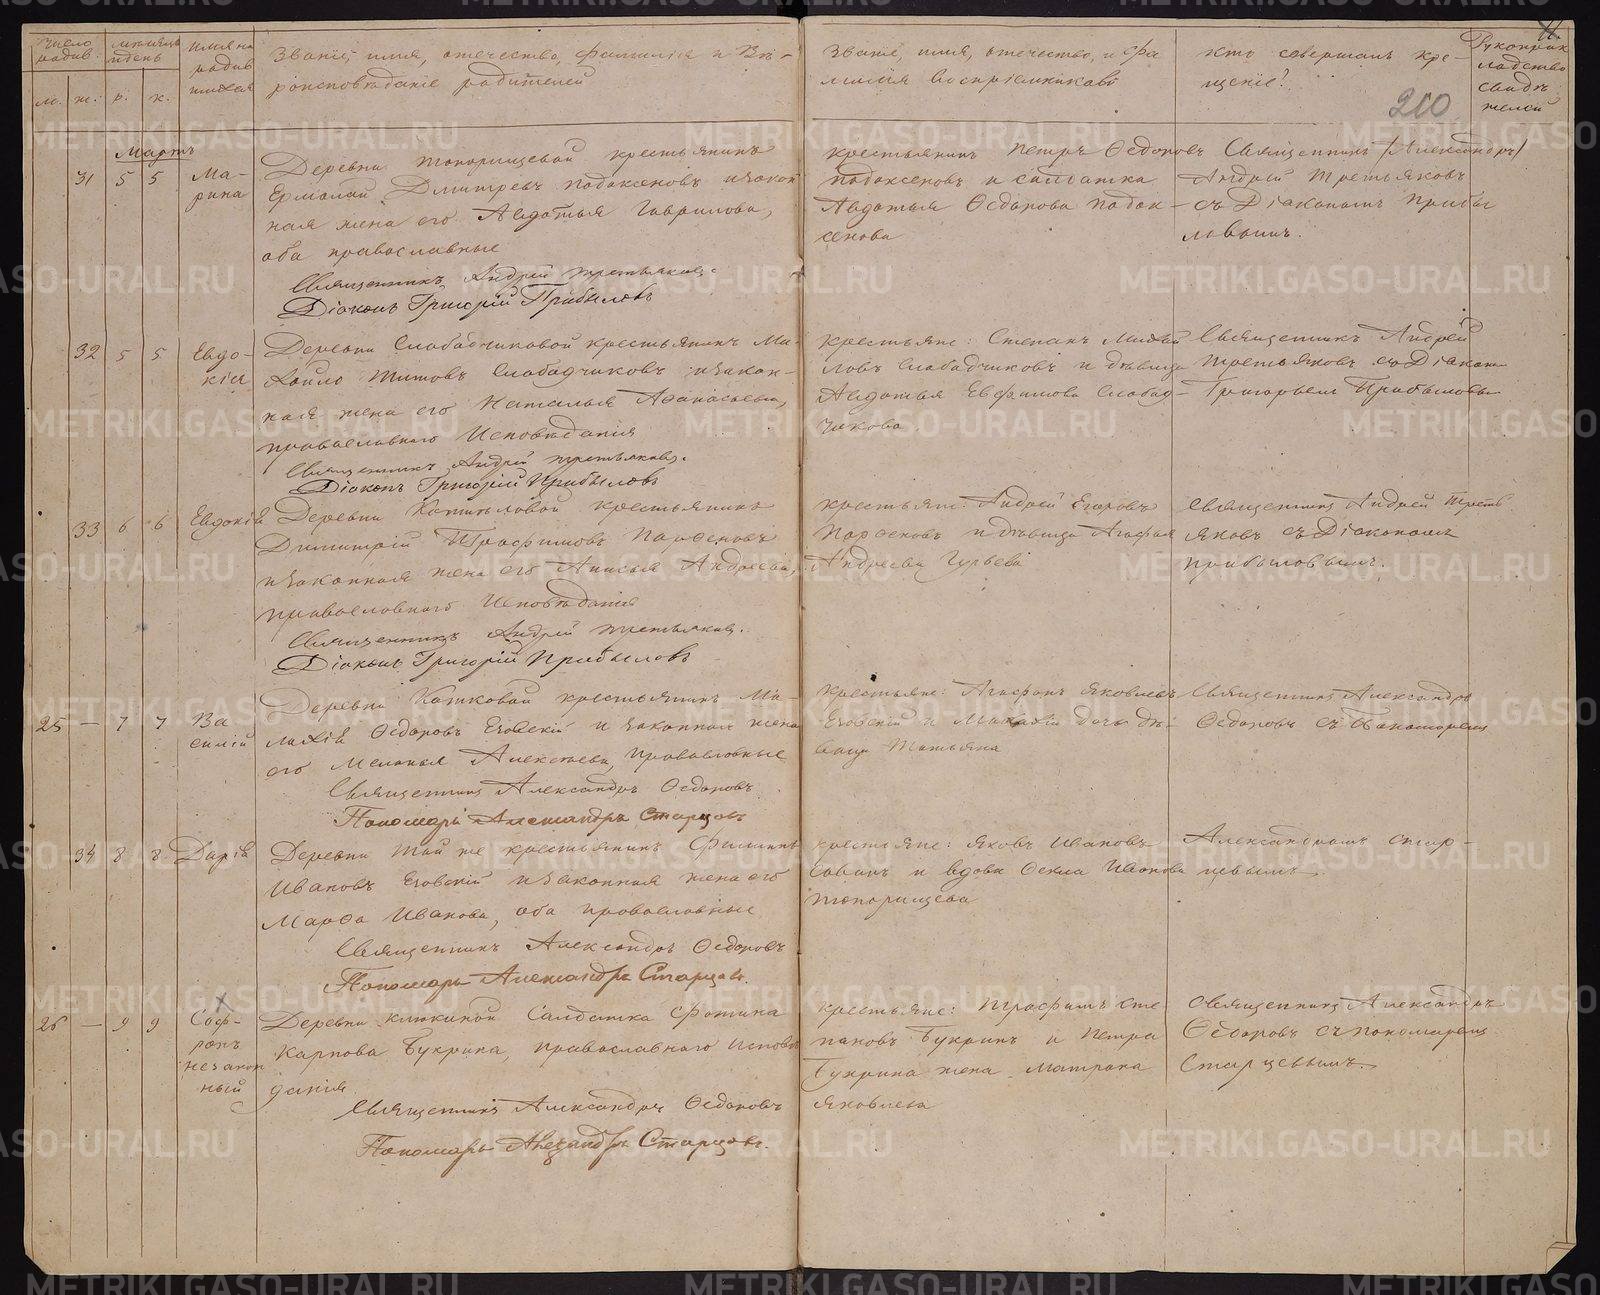 Число родив.
мѣсяцъ и день
имяна родившихся
Званіе, имя, отечество, фамилія и Вѣ-
роисповѣданіе родителей
Званіе, имя, отечество, и фа
милія воспріемниковъ
кто совершалъ кре-
щеніе?
Рукоприк
ладство
свидѣ
телей
м. ж. р. к.
210
11
Мартъ
31 5 5
Ма-
рина
Деревни Топорищевой крестьянинъ
Ермолай Дмитревъ Подоксеновъ и закон
ная жена его Авдотья Гаврилова,
оба православные
Священникъ Андрей Третьяковъ.
Діаконъ Григорій Прибыловъ
крестьянинъ Петръ Ѳедоровъ
Подоксеновъ и солдатка
Авдотья Ѳедорова Подок-
сенова
Священникъ (Александръ)
Андрей Третьяковъ
съ Діакономъ Прибы
ловымъ.
32 5 5
Евдо-
кія
Деревни Слободчиковой крестьянинъ Ми-
хайло Титовъ Слободчиковъ и закон-
ная жена его Наталья Афанасьева,
православнаго Исповѣданія
Священникъ Андрей Третьяковъ.
Діаконъ Григорій Прибыловъ
крестьяне: Степанъ Михай
ловъ Слободчиковъ и дѣвица
Авдотья Евфимова Слобод-
чикова
Священникъ Андрей
Третьяковъ съ Діакономъ
Григорьем Прибыловым
33 6 6
Евдокія
Деревни крестьянинъ
Димитрій Трофимовъ Парѳеновъ
и законная жена его Анисья Андреева,
православнаго Исповѣданія
Священникъ Андрей Третьяковъ.
Діаконъ Григорій Прибыловъ
крестьяне: Андрей Егоровъ
Парѳеновъ и дѣвица Агафья
Андреева Гурьева
Священникъ Андрей Треть
яковъ съ Діакономъ
Прибыловымъ.
25 — 7 7
Ва
силій
Деревни крестьянинъ Ма-
лахій Ѳедоровъ Еговскій и законная жена
его Меланья Алексѣева, Православные
Священникъ Александръ Ѳедоровъ
Пономарь Александръ Старцовъ
крестьяне: Агафонъ Яковлевъ
Еговскій и Малахія дочь дѣ-
вица Татьяна
Священникъ Александръ
Ѳедоровъ съ Пономаремъ
34 8 8
Дарія
Деревни той же крестьянинъ Филиппъ
Ивановъ Еговскій и законная жена его
Марѳа Иванова, оба православные
Священникъ Александръ Ѳедоровъ
Пономарь Александръ Старцовъ.
крестьяне: Яковъ Ивановъ
и вдова Ѳекла Иванова
Топорищева
Александромъ Стар-
цевымъ
26 — 9 9
Соф-
ронъ
незакон
ный
Деревни Клюкиной Солдатка Фотина
Карпова Букрина, православнаго Исповѣ
данія
Священникъ Александръ Ѳедоровъ
Пономарь Александръ Старцовъ.
крестьяне: Трофимъ Сте
пановъ Букринъ и Петра
Букрина жена Матрона
Яковлева
Священникъ Александръ
Ѳедоровъ съ пономаремъ
Старцевымъ.
METRIKI.GASO-URAL.RU